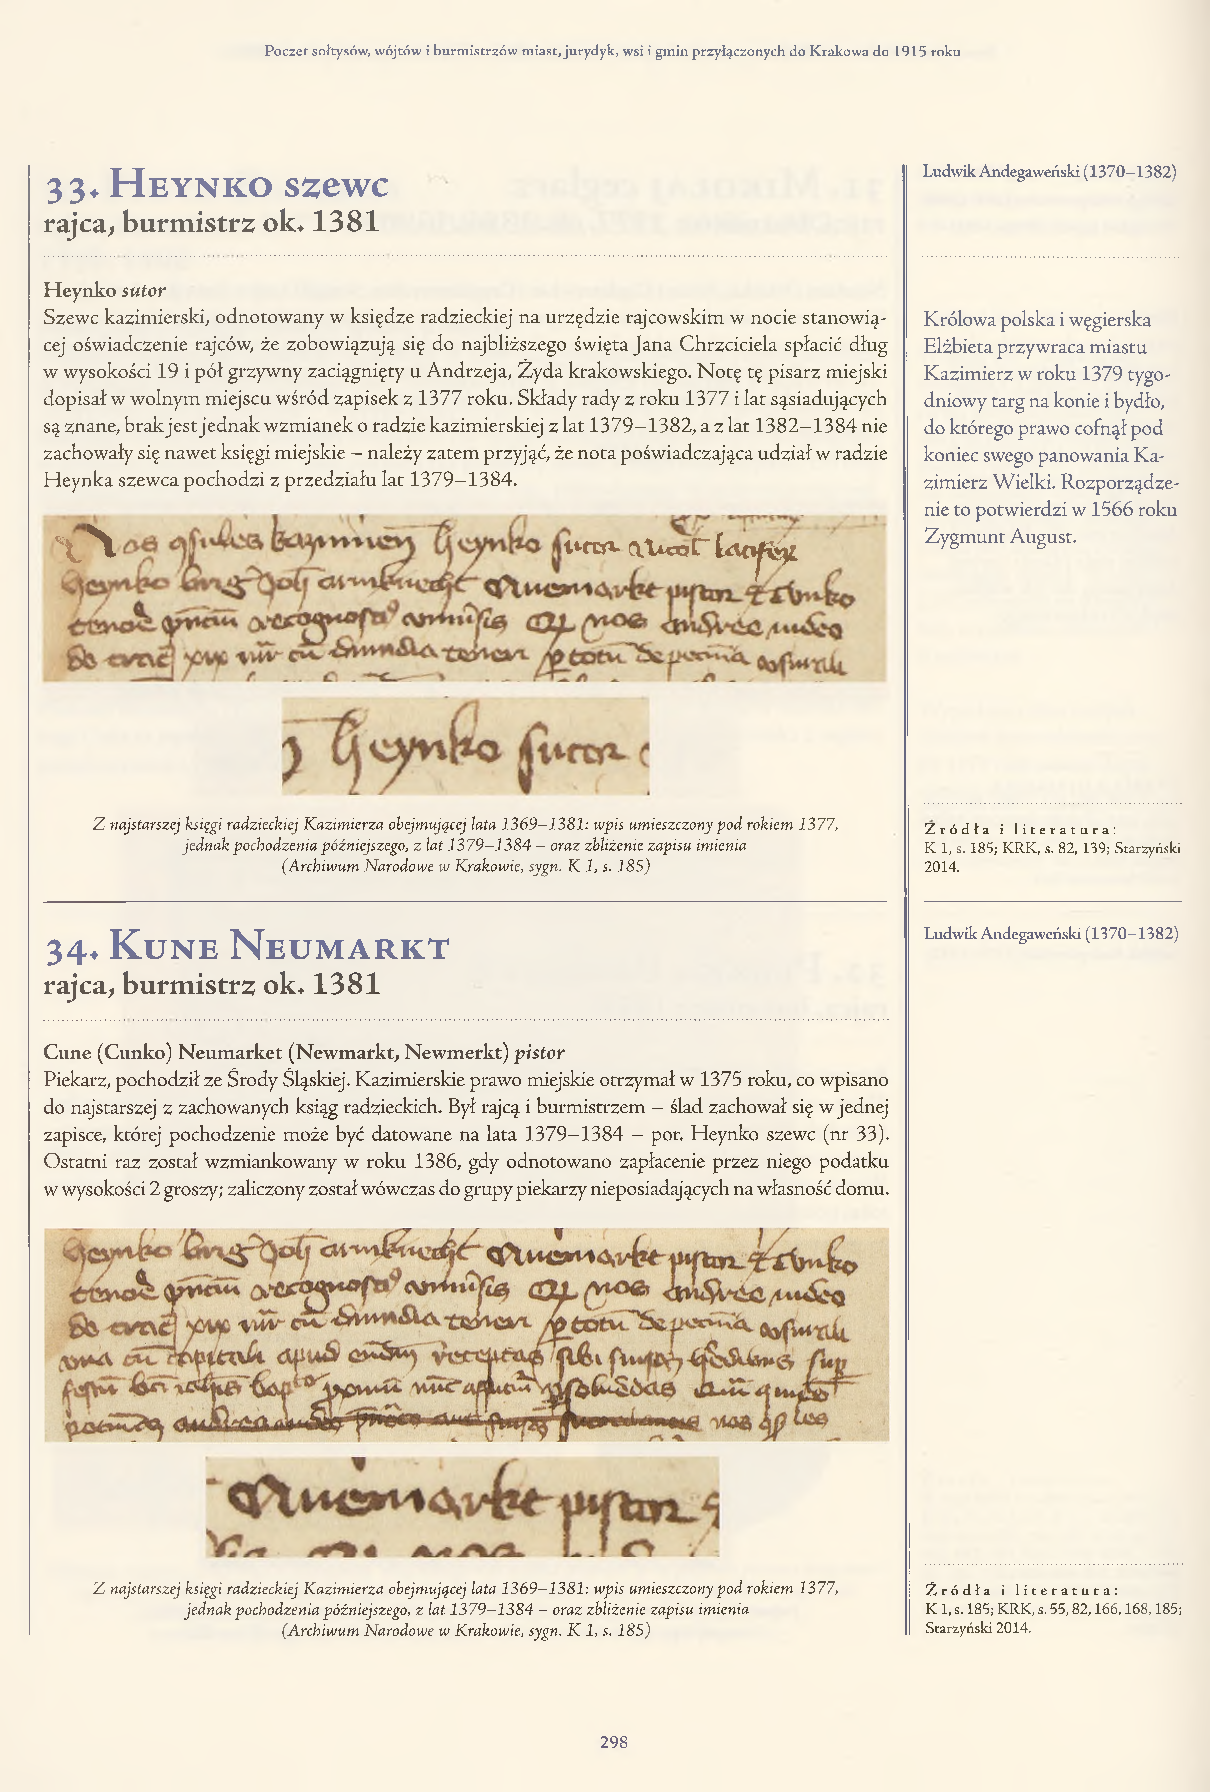 Poczet sołtysów, wójtów i burmistrzów miast, jurydyk, wsi i gmin przyłączonych do Krakowa do 1915 roku
33. Heynko szewc
rajca, burmistrz ok. 1381
Heynko sutor
Szewc kazimierski, odnotowany w księdze radzieckiej na urzędzie rajcowskim w nocie stanowią-
cej oświadczenie rajców, że zobowiązują się do najbliższego święta Jana Chrzciciela spłacić dług
w wysokości 19 i pół grzywny zaciągnięty u Andrzeja, Żyda krakowskiego. Notę tę pisarz miejski
dopisał w wolnym miejscu wśród zapisek z 1377 roku. Składy rady z roku 1377 i lat sąsiadujących
są znane, brak jest jednak wzmianek o radzie kazimierskiej z lat 1379–1382, a z lat 1382–1384 nie
zachowały się nawet księgi miejskie – należy zatem przyjąć, że nota poświadczająca udział w radzie
Heynka szewca pochodzi z przedziału lat 1379–1384.
heynko sutor
Z najstarszej księgi radzieckiej Kazimierza obejmującej lata 1369–1381: wpis umieszczony pod rokiem 1377,
jednak pochodzenia późniejszego, z lat 1379–1384 – oraz zbliżenie zapisu imienia
(Archiwum Narodowe w Krakowie, sygn. K 1, s. 185)
Ludwik Andegaweński (1370–1382)
Królowa polska i węgierska
Elżbieta przywraca miastu
Kazimierz w roku 1379 tygo-
dniowy targ na konie i bydło,
do którego prawo cofnął pod
koniec swego panowania Ka-
zimierz Wielki. Rozporządze-
nie to potwierdzi w 1566 roku
Zygmunt August.
Źródła i literatura:
K 1, s. 185; KRK, s. 82, 139; Starzyński
2014.
34. Kune Neumarkt
rajca, burmistrz ok. 1381
Cune (Cunko) Neumarket (Newmarkt, Newmerkt) pistor
Piekarz, pochodził ze Środy Śląskiej. Kazimierskie prawo miejskie otrzymał w 1375 roku, co wpisano
do najstarszej z zachowanych ksiąg radzieckich. Był rajcą i burmistrzem – ślad zachował się w jednej
zapisce, której pochodzenie może być datowane na lata 1379–1384 – por. Heynko szewc (nr 33).
Ostatni raz został wzmiankowany w roku 1386, gdy odnotowano zapłacenie przez niego podatku
w wysokości 2 groszy; zaliczony został wówczas do grupy piekarzy nieposiadających na własność domu.
pistor
Z najstarszej księgi radzieckiej Kazimierza obejmującej lata 1369–1381: wpis umieszczony pod rokiem 1377,
jednak pochodzenia późniejszego, z lat 1379–1384 – oraz zbliżenie zapisu imienia
(Archiwum Narodowe w Krakowie, sygn. K 1, s. 185)
Ludwik Andegaweński (1370–1382)
Źródła i literatura:
K 1, s. 185; KRK, s. 55, 82, 166, 168, 185;
Starzyński 2014.
298